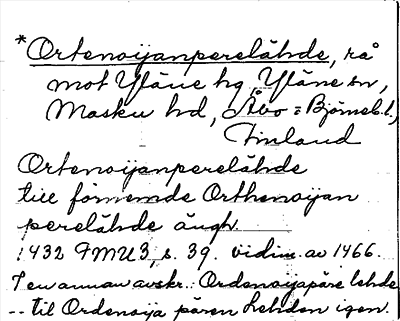 *Ortenoijanperelähde, rå
mot Yläne hg Yläne sn,
Masku hd, Åbo = Björneb. l.,
Finland
Ortenoijanperelähde
till förnemde Orthenoijan
perelähde ängh.
1432 FMU3, s. 39. vidim. av 1466.
I en annan avskr.: Ordenoijapäre lehde
-- til Ordenoija pären lehden igen.